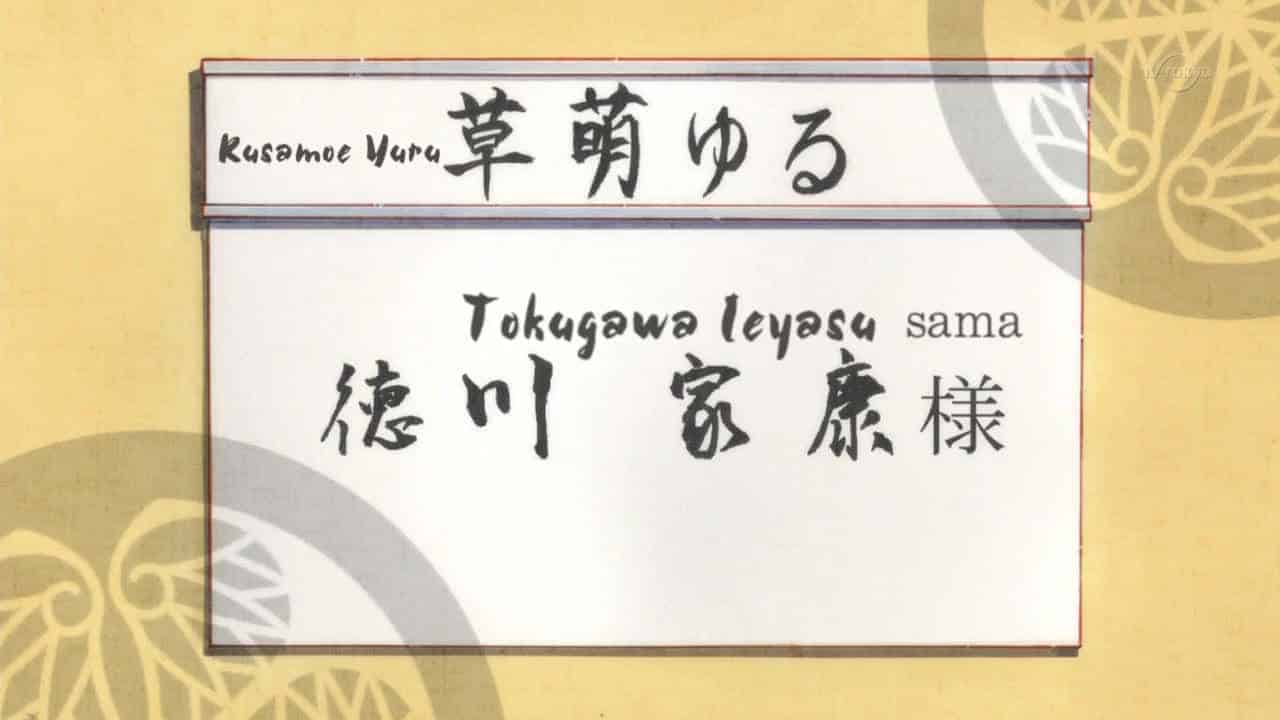 Kusamoe Yuru 草萌ゆる
Tokugawa Ieyasu sama
徳川 家康様